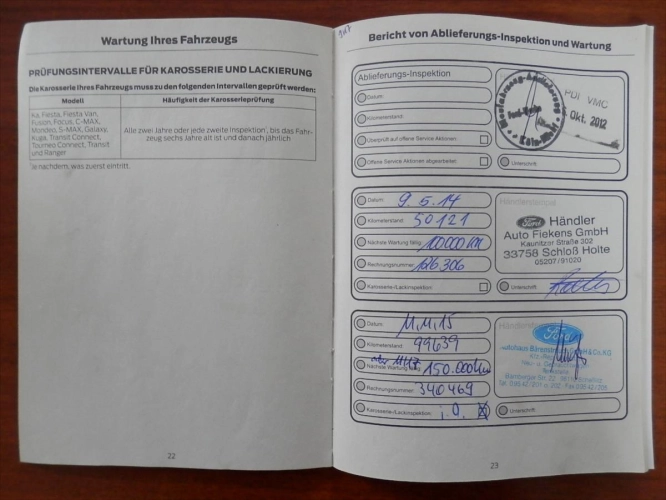 Wartung Ihres Fahrzeugs
PRÜFUNGSINTERVALLE FÜR KAROSSERIE UND LACKIERUNG
Die Karosserie Ihres Fahrzeugs muss zu den folgenden Intervallen geprüft werden:
Modell
Häufigkeit der Karosserieprüfung
Ka, Fiesta, Fiesta Van,
Fusion, Focus, C-MAX,
Mondeo, S-MAX, Galaxy,
Kuga, Transit Connect,
Tourneo Connect, Transit
und Ranger
Alle zwei Jahre oder jede zweite Inspektion*, bis das Fahr-
zeug sechs Jahre alt ist und danach jährlich
*je nachdem, was zuerst eintritt.
22
Bericht von Ablieferungs-Inspektion und Wartung
Ablieferungs-Inspektion
Datum:
Kilometerstand:
Überprüft auf offene Service Aktionen:
Offene Service Aktionen abgearbeitet:
PDI VMC
Okt. 2012
Unterschrift:
Datum: 9.5.14
Kilometerstand: 50121
Nächste Wartung fällig: 100000 km
Rechnungsnummer: 126306
Karosserie-/Lackinspektion:
Händlerstempel
Ford Händler
Auto Fiekens GmbH
Kaunitzer Straße 302
33758 Schloß Holte
05207/91020
Unterschrift:
Datum: 11.11.15
Kilometerstand: 99639
oder 11/17
Nächste Wartung fällig: 150.000 km
Rechnungsnummer: 340469
Karosserie-/Lackinspektion: i.O. X
Ford
Unterschrift:
23